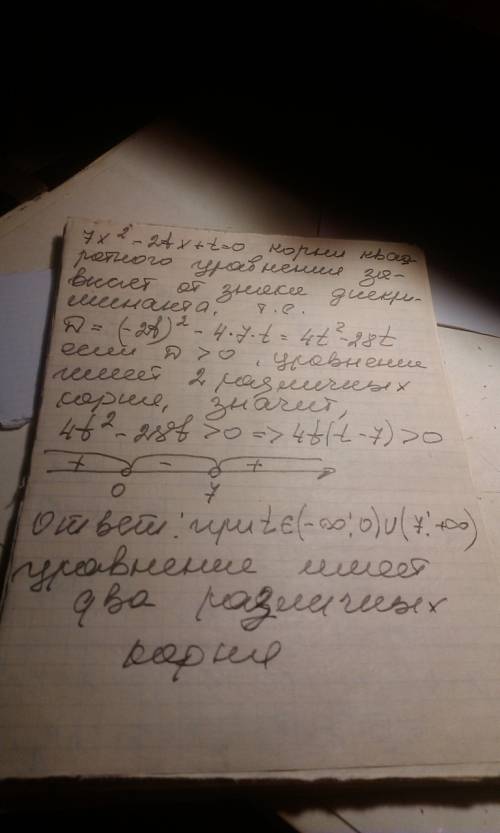 7x² - 2tx + t = 0 корни квад-
ратного уравнения за-
висят от знака дискри-
минанта, т.е.
D = (-2t)² - 4·7·t = 4t² - 28t
если D > 0, уравнение
имеет 2 различных
корня, значит,
4t² - 28t > 0 => 4t(t - 7) > 0
+ - +
0 7
Ответ: при t ∈ (-∞; 0) ∪ (7; +∞)
уравнение имеет
два различных
корня